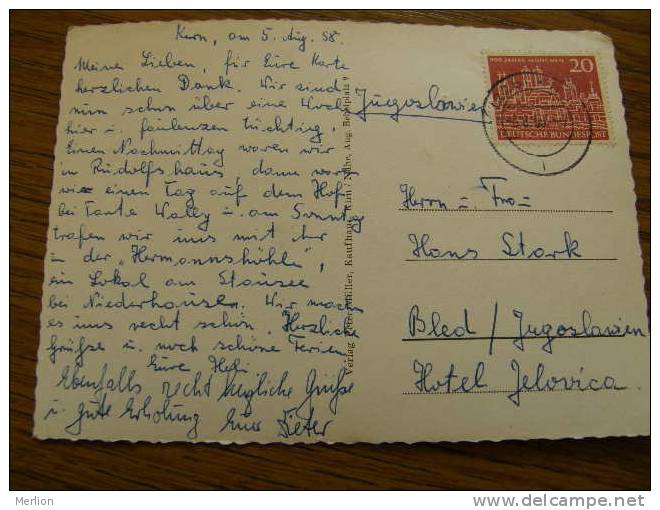 Kern, am 5. Aug. 58.
Meine Lieben, für Eure Karte
herzlichen Dank. Wir sind
nun schon über eine Woche
hier u. faulenzen tüchtig.
Einen Nachmittag waren wir
in Rudolfshaus, dann waren
wir einen Tag auf dem Hof
bei Tante Wally u. am Sonntag
trafen wir uns mit ihr
in der "Hermannshöhle",
ein Lokal am Stausee
bei Niederhausen. Wir machen
es uns recht schön. Herzliche
Grüße u. noch schöne Ferien
Eure
Ebenfalls recht herzliche Grüße
u. gute Erholung Euer Dieter
Verlag Müller, Kaufhaus, Kirn / Nahe, Aug. Bebelplatz 9
Jugoslawien
900 JAHRE MÜNCHEN
20
DEUTSCHE BUNDESPOST
Herrn u. Frau
Hans Stark
Bled / Jugoslawien
Hotel Jelovica.
Merlion
delcampe.net